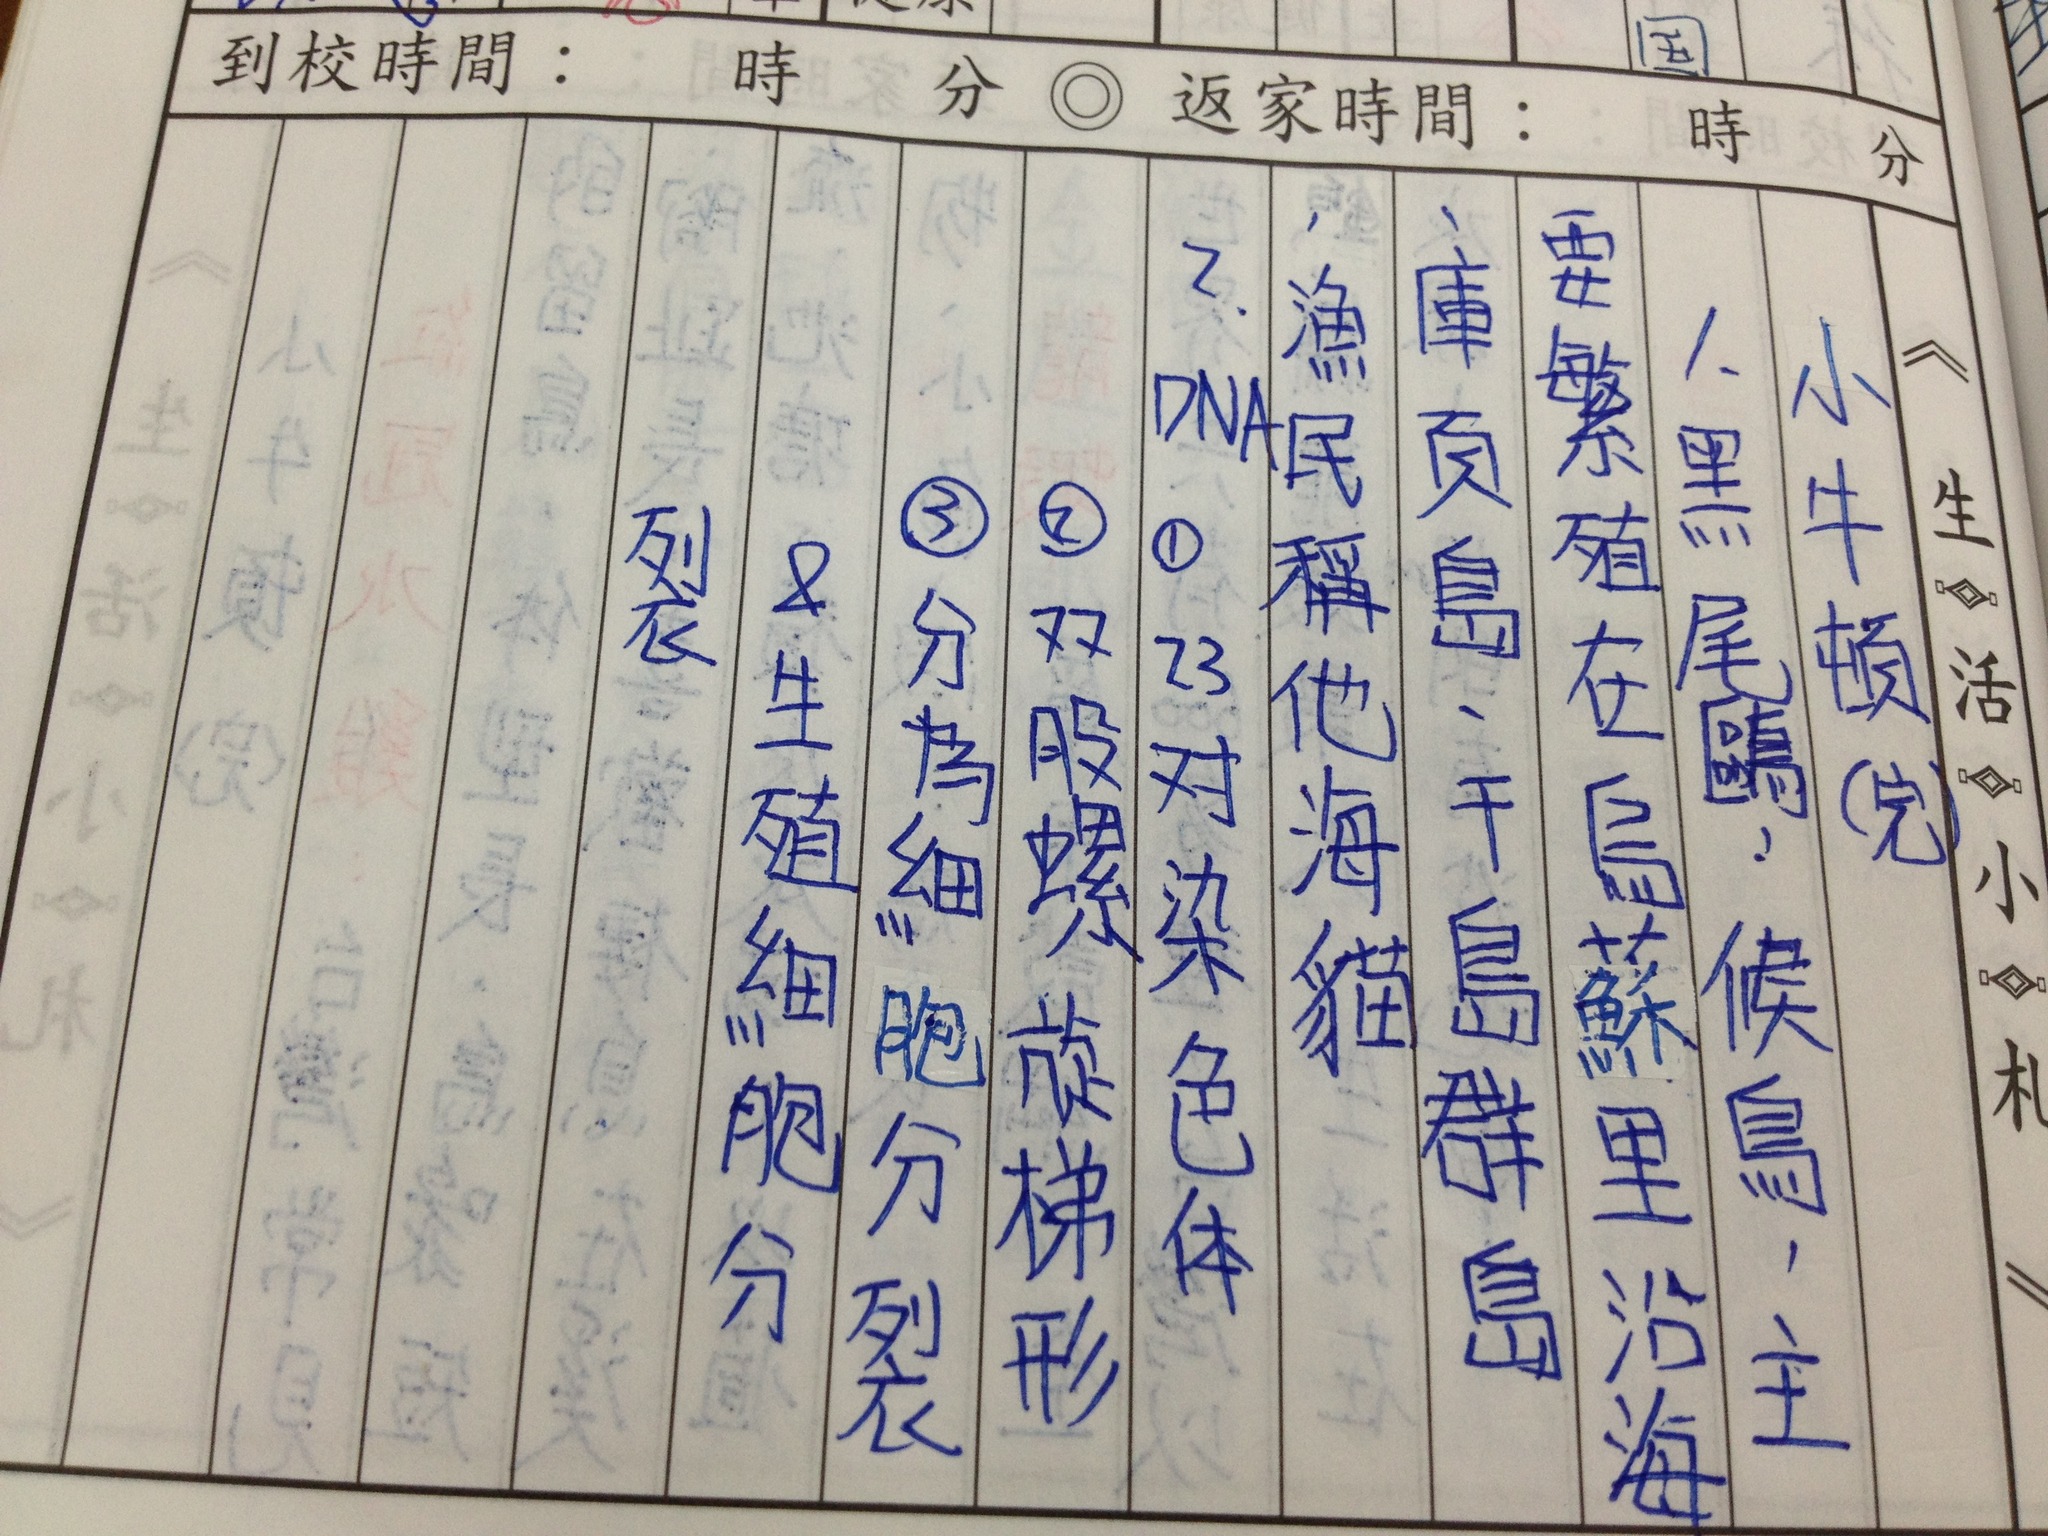 到校時間： 時 分 ◎ 返家時間： 時 分
《生活小札》
小牛頓(完)
1.黑尾鷗，候鳥，主
要繁殖在烏蘇里沿海
、庫頁島、千島群島
，漁民稱他海貓
2. DNA ① 23对染色体
② 双股螺旋梯形
③ 分為細胞分裂
& 生殖細胞分
裂